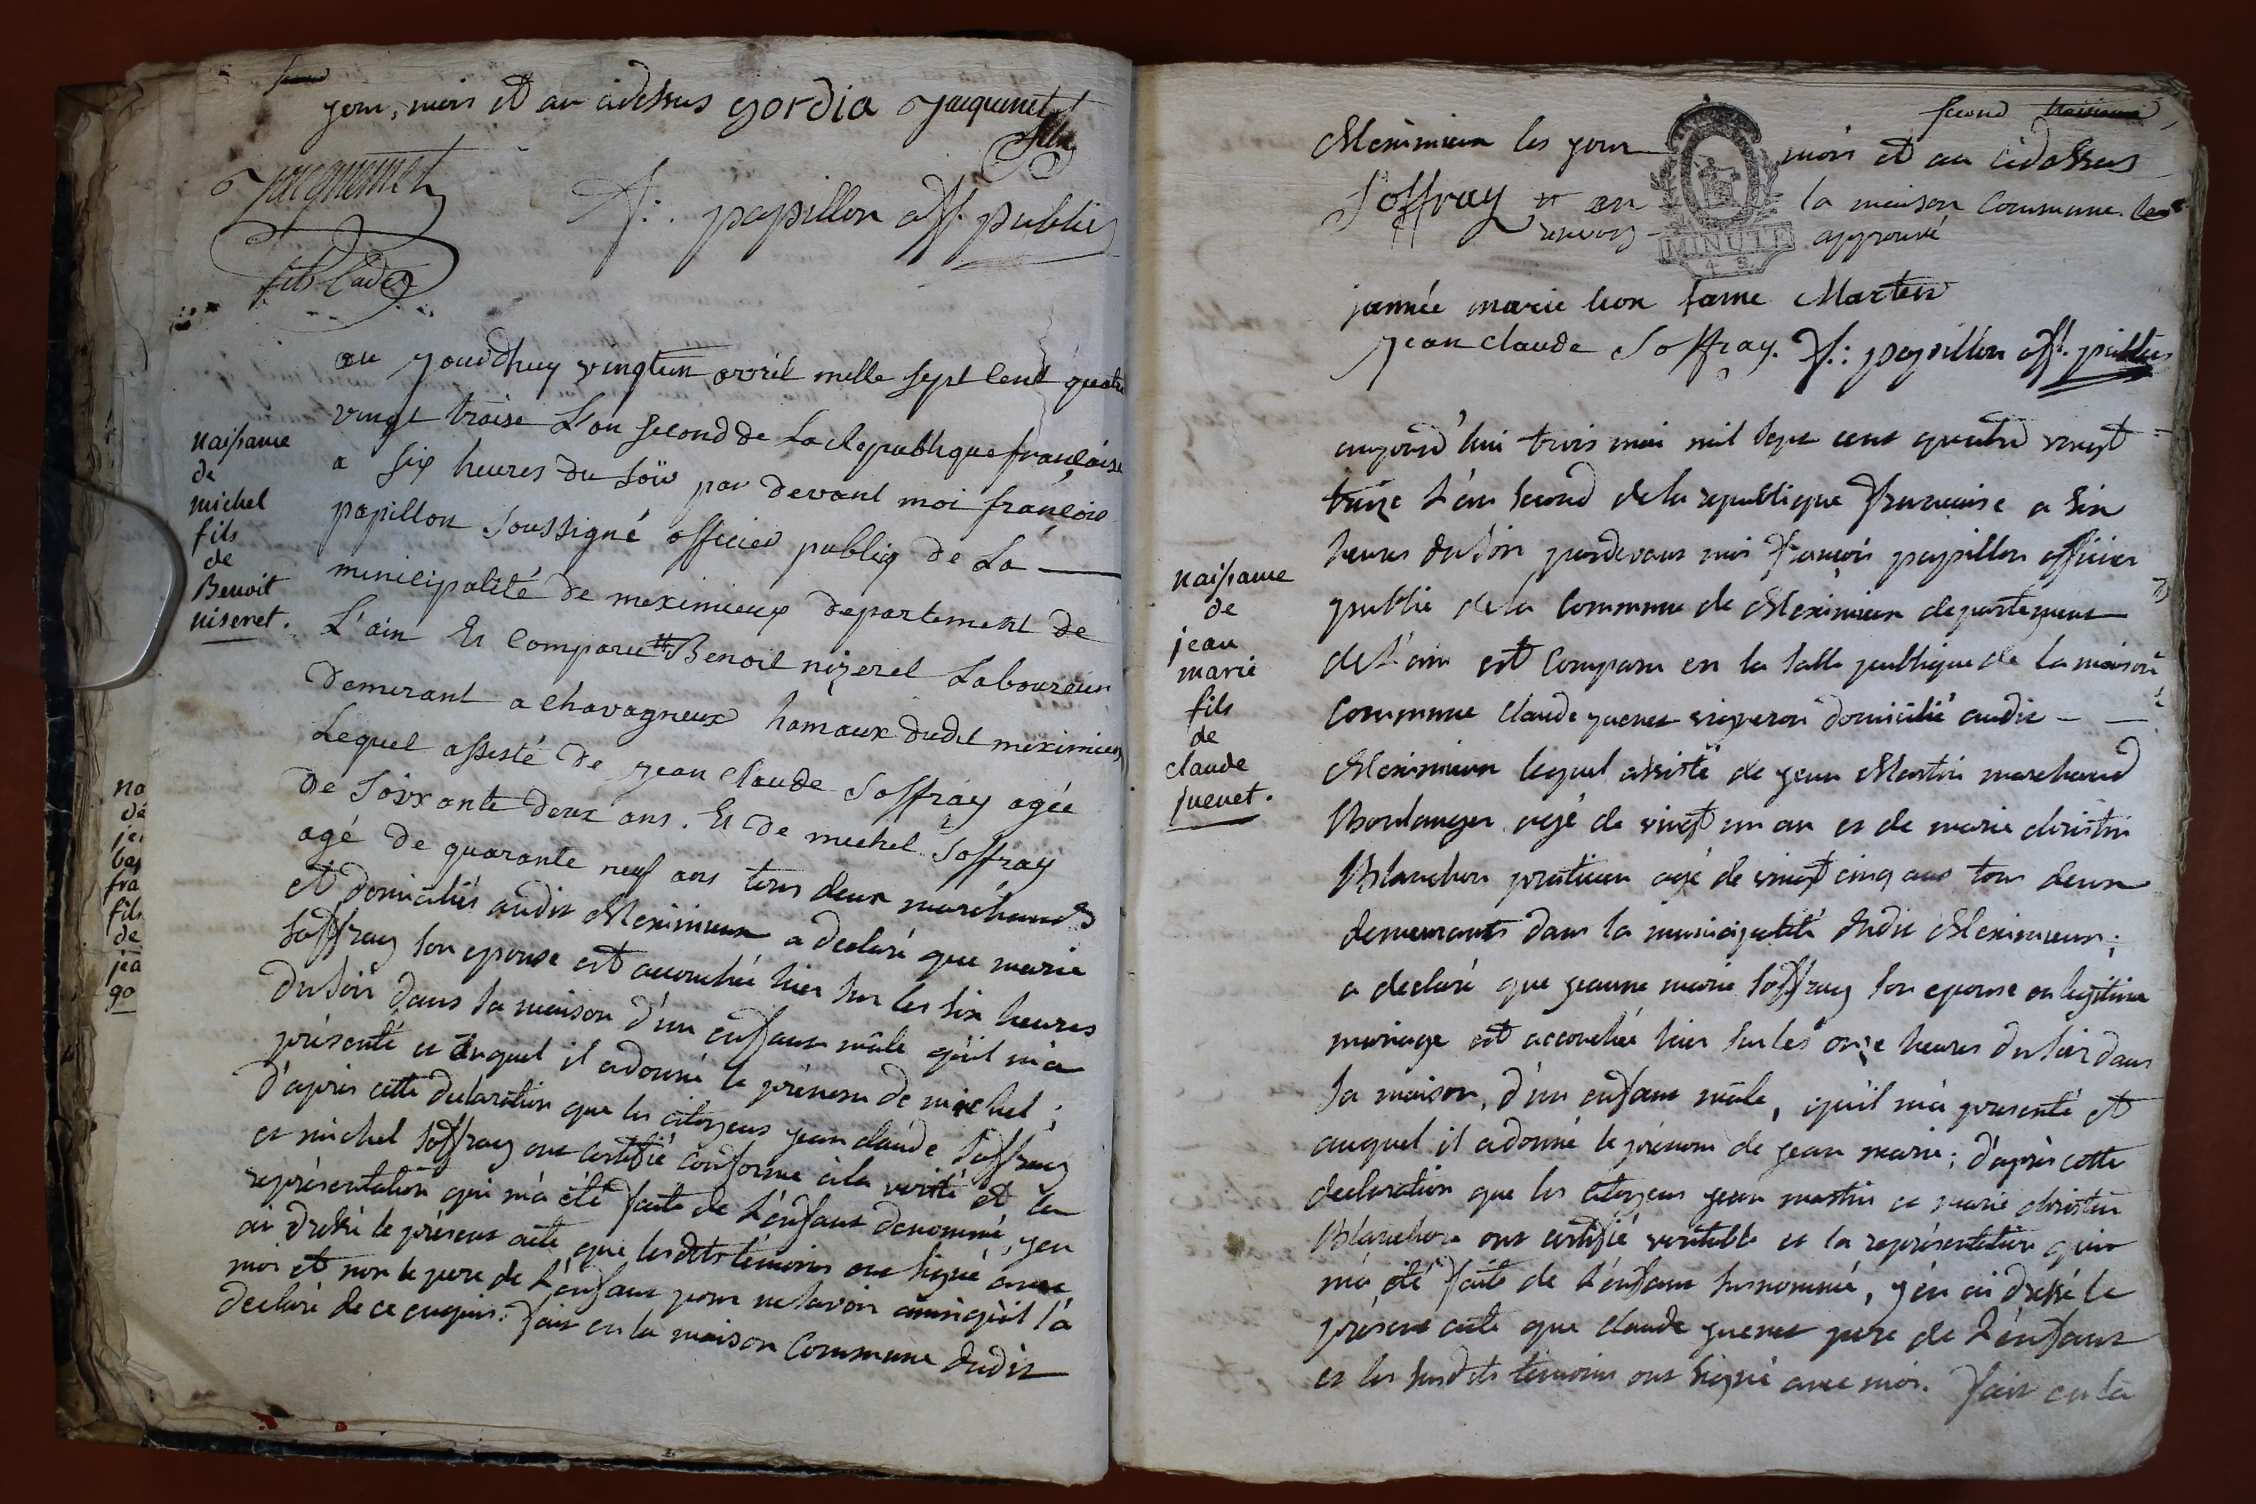 jour, mois et an cidessus gordia Jacquemet
fils
Jacquemet
fils Cadet
F: papillon off. public
naissance
de
michel
fils
de
Benoit
niseret.
au yourdhuy vingtun avril mille sept cent quatre
vingt traise L'an second de La Republique françaisse
a six heures du soir par devant moi françois
papillon soussigné officier public de La
minicipalité de meximieux departement de
L'ain Es Comparu Benoit nizeret Laboureur
Demerant a Chavagneux hamaux dudit meximieux
Lequel assisté de jean Claude Soffray agée
de soixante deux ans. Et de michel Soffray
agé de quarante neuf ans tous deux marchands
et domiciliés audit Meximieux a declaré que marie
Soffray son epouse est accouchée hier sur les six heures
du soir dans sa maison d'un enfant mâle qu'il m'a
présenté et auquel il a donné le prénom de michel;
d'après cette declaration que les citoyens jean claude Soffray
et michel Soffray ont certifié conforme à la verité et la
représentation qui m'a été faite de L'enfant denommé, j'en
ai dressé le présent acte que lesdits témoins ont signé avec
moi et non le pere de L'enfant pour ne savoir ainsi qu'il l'a
declaré de ce enquis. fait en la maison commune dudit
na
de
jea
bap
fra
fils
de
jea
go
second troisieme
Meximieux les jour mois et an cidessus
Soffray en la maison commune
renvoy approuvé
MINUTE
4 S.
jannée marie lion fame Martin
Jean claude Soffray. F: papillon off. public
naissance
de
jean
marie
fils
de
claude
juenet.
aujourd'hui trois mai mil sept cent quatre vingt
treize L'an second de la republique francaise a six
heures du soir pardevant moi François papillon officier
public de la commune de Meximieux departement
de L'ain est comparu en la salle publique de la maison
commune Claude juenet vigneron domicilié audit
Meximieux lequel assisté de jean Martin marchand
Boulanger agé de vingt un an et de marie christin
Blanchon praticien agé de vingt cinq ans tous deux
demeurants dans la municipalité dudit Meximieux;
a declaré que jeanne marie Soffray son epouse en legitime
mariage est accouchée hier sur les onze heures du soir dans
sa maison, d'un enfant mâle, qu'il m'a presenté et
auquel il a donné le prénom de jean marie; d'après cette
declaration que les citoyens jean martin et marie christin
Blanchon ont certifié veritable et la représentation qui
m'a été faite de L'enfant susnommé, j'en ai dressé le
présent acte que claude juenet pere de L'enfant
et les susdits temoins ont signé avec moi. fait en la